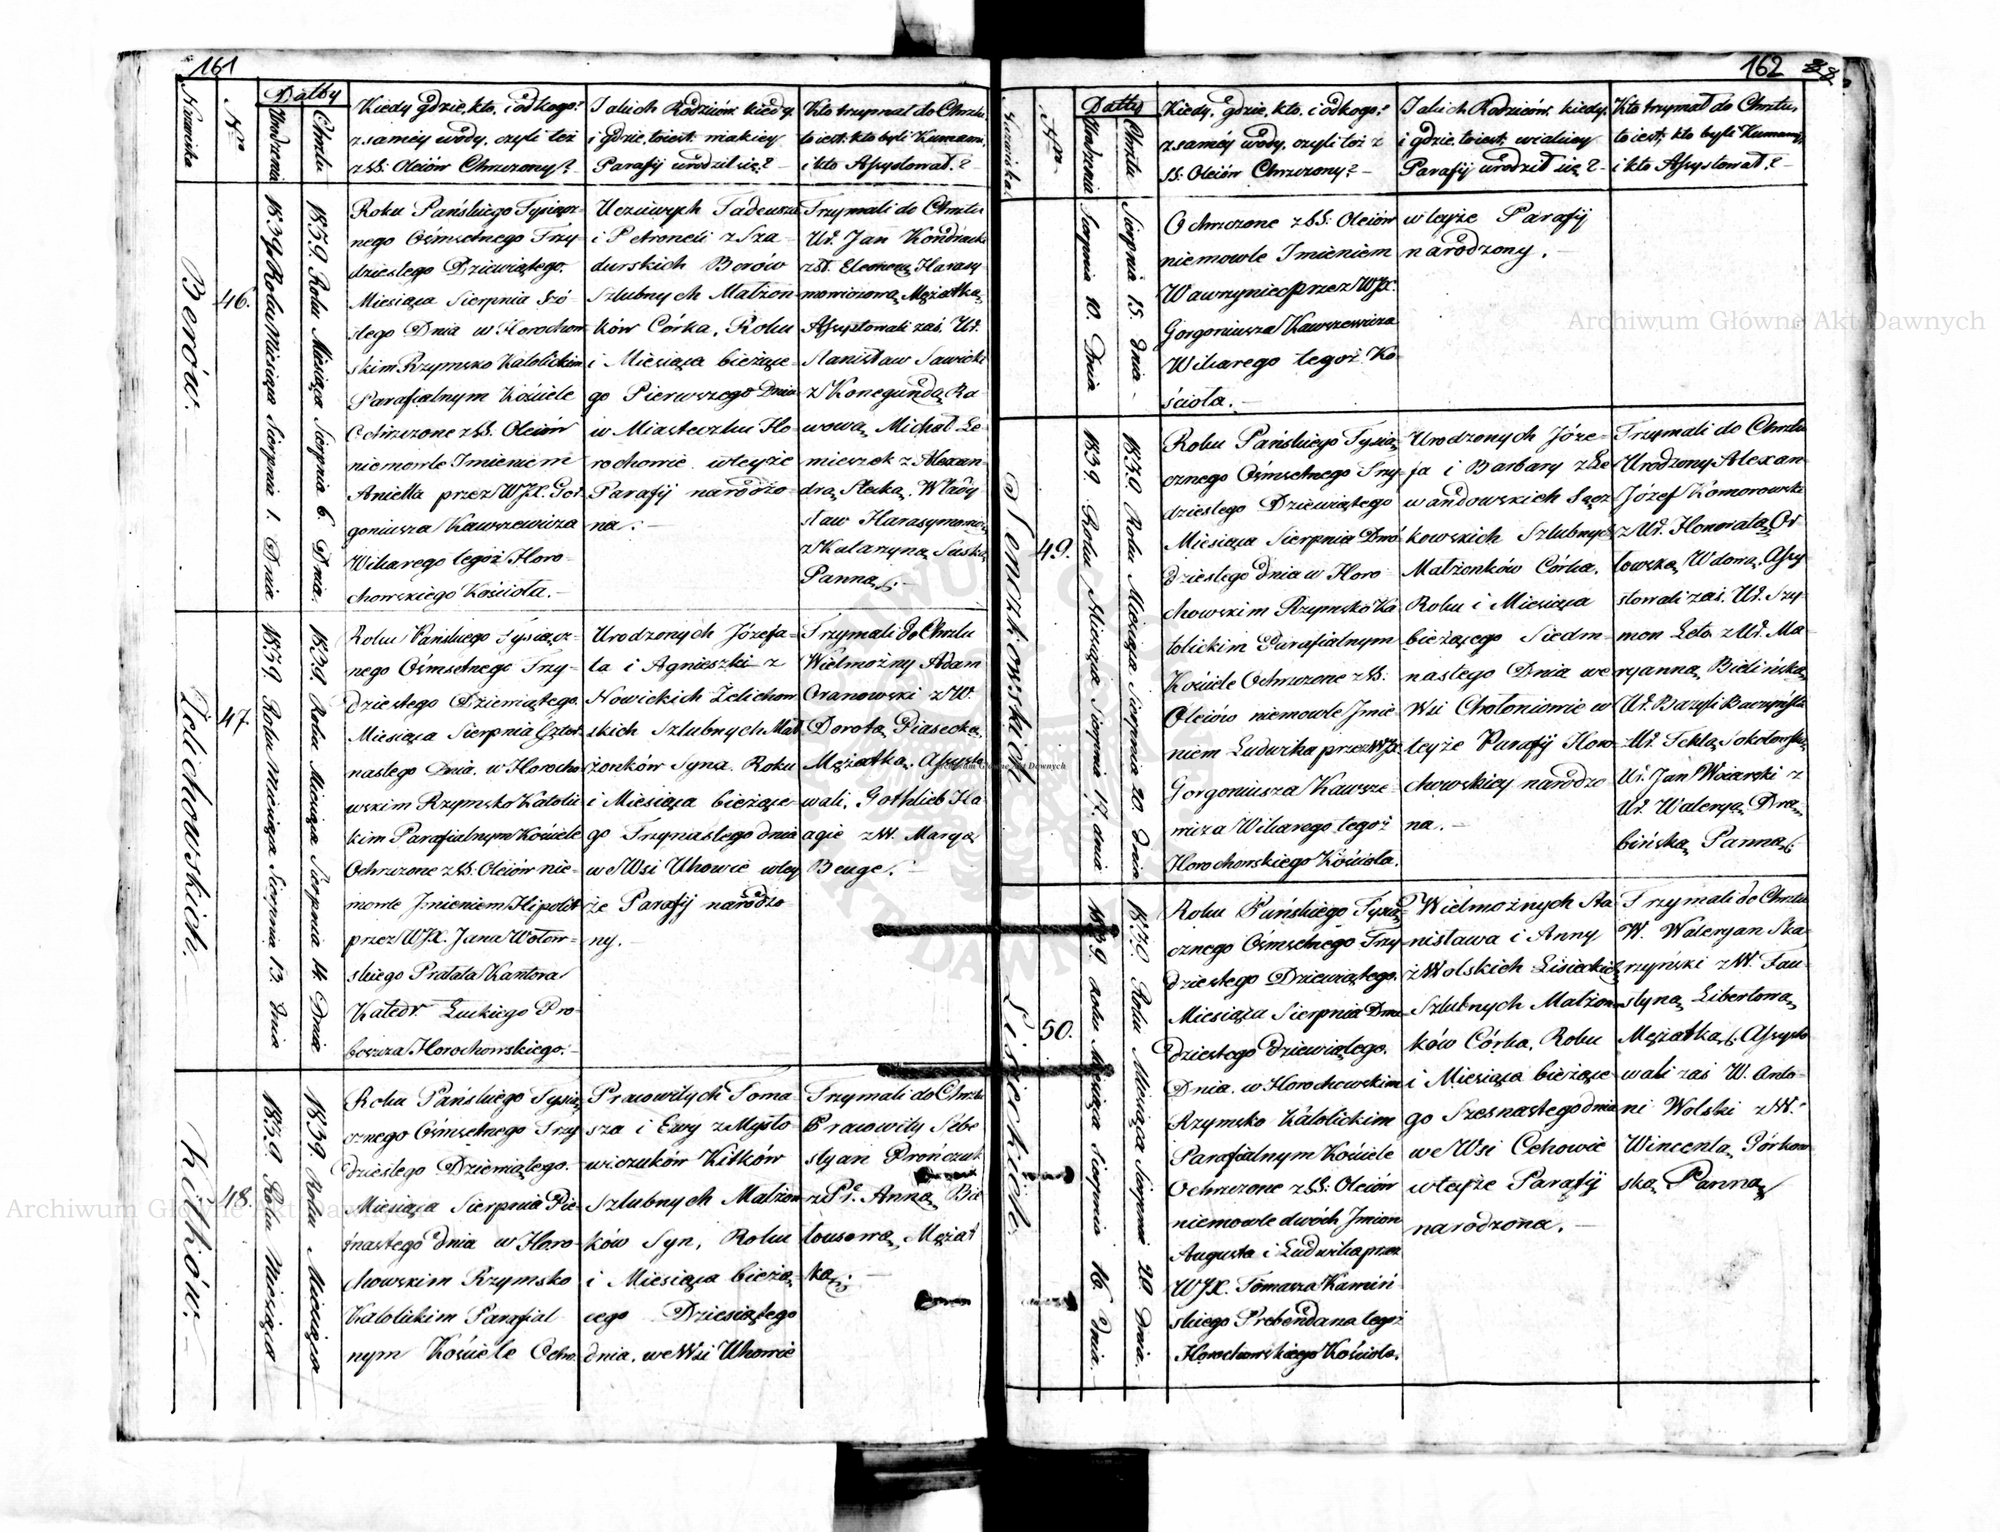 161
Nazwiska
Nro
Datty
Urodzenia
Chrztu
Kiedy, gdzie, kto, i od kogo?
z samey wody, czyli też
z SS: Oleiów Chrzczony? –
Jakich Rodziców, kiedy,
i gdzie, to iest, w iakiey
Parafij urodził się? –
Kto trzymał do Chrztu,
to iest, kto byli Kumami,
i kto Assystował? –
Berów. –
46.
1839 Roku Miesiąca Sierpnia 1. Dnia
1839. Roku Miesiąca Sierpnia 6. Dnia.
Roku Pańskiego Tysiącz-
nego Ośmsetnego Trzy-
dziestego Dziewiątego.
Miesiąca Sierpnia Szó-
stego Dnia w Horochow-
skim Rzymsko Katolickim
Parafialnym Kościele
Ochrzczone z SS. Oleiów
niemowle Imieniem
Aniella przez WJX. Gor
goniusza Kawszewicza
Wikarego tegoż Horo-
chowskiego Kościoła. –
Uczciwych Tadeusza
i Petroneli z Sza-
durskich Berów
Szlubnych Małżon-
ków Córka, Roku
i Miesiąca bieżące-
go Pierwszego Dnia
w Miasteczku Ho-
rochowie w teyże
Parafij narodzo-
na. –
Trzymali do Chrztu
Ur. Jan Kondracki
z Ur. Eleonorą Harasy-
mowiczową Mężatką,
Assystowali zaś, Ur.
Stanisław Sawicki
z Konegundą Ra-
wową, Michał Le-
mieszek z Alexan-
drą Stecką. Włady
sław Harasymowicz
z Katarzyną Suską
Panną. –
Żelichowskich. –
47.
1839. Roku Miesiąca Sierpnia 13. Dnia
1839. Roku Miesiąca Sierpnia 14. Dnia
Roku Pańskiego Tysiącz-
nego Ośmsetnego Trzy-
dziestego Dziewiątego.
Miesiąca Sierpnia Czter-
nastego Dnia. w Horocho
wskim Rzymsko Katolic
kim Parafialnym Kościele
Ochrzczone z SS. Oleiów nie-
mowle Imieniem Hipolit
przez WJX. Jana Wołow-
skiego Prałata Kantora
Katedr. Łuckiego Pro-
boszcza Horochowskiego. –
Urodzonych Józefa-
ta i Agnieszki z
Nowickich Żelichow
skich Szlubnych Mał
żonków Syna. Roku
i Miesiąca bieżące-
go Trzynastego dnia
we Wsi Uhowie w tey
że Parafij narodzo
ny. –
Trzymali do Chrztu
Wielmożny Adam
Oranowski z W.
Dorotą Piasecką
Mężatką. Assysto
wali. Gottlieb Ha
agie z W. Maryą
Beuge. –
Kitków. –
48.
1839 Roku Miesiąca
1839. Roku Miesiąca
Roku Pańskiego Tysią
cznego Ośmsetnego Trzy
dziestego Dziewiątego. –
Miesiąca Sierpnia Pię-
tnastego dnia w Horo-
chowskim Rzymsko
Katolickim Parafial
nym Kościele Ochrz.
Pracowitych Toma-
sza i Ewy z Mysło
wiczuków Kitków
Szlubnych Małżon
ków Syn, Roku
i Miesiąca bieżą-
cego Dziesiątego
dnia, we Wsi Uhowie
Trzymali do Chrztu
Pracowity Sebe
styan Prończuk
z Pr. Anną Bie
lousową, Mężat
ką. –
162
Nazwiska.
Nro
Datty
Urodzenia
Chrztu
Kiedy, gdzie, kto, i od kogo?
z samey wody, czyli też z
SS. Oleiów Chrzczony? –
Jakich Rodziców, kiedy,
i gdzie, to iest, w iakiey
Parafij urodził się? –
Kto trzymał do Chrztu,
to iest, kto byli Kumami,
i kto Assystował? –
Sierpnia 10. Dnia
Sierpnia 15. dnia.
Ochrzczone z SS. Oleiów
niemowle Imieniem
Wawrzyniec przez WJX.
Gorgoniusza Kawszewicza
Wikarego tegoż Ko-
ścioła. –
w teyże Parafij
narodzony. –
Sączkowskich
49.
1839. Roku Miesiąca Sierpnia 17. dnia
1839 Roku Miesiąca Sierpnia 20. Dnia
Roku Pańskiego Tysią
cznego Ośmsetnego Trzy-
dziestego Dziewiątego
Miesiąca Sierpnia Dwu
dziestego dnia w Horo
chowskim Rzymsko Ka
tolickim Parafialnym
Kościele Ochrzczone z SS.
Oleiów niemowle Imie
niem Ludwika przez WJX
Gorgoniusza Kawsze-
wicza Wikarego tegoż
Horochowskiego Kościoła.
Urodzonych Józe-
fa i Barbary z Le
wandowskich Sącz
kowskich Szlubnych
Małżonków Córka.
Roku i Miesiąca
bieżącego Siedm-
nastego Dnia we
Wsi Chołoniowie w
teyże Parafij Horo
chowskiey narodzo
na. –
Trzymali do Chrztu
Urodzony Alexan-
Józef Komorowski
z Ur. Honoratą Or
łowską Wdową. Assy
stowali zaś. Ur. Szy-
mon Leto z Ur. Ma-
ryanną Bielińską,
Ur. Bazyli Baczyński z
Ur. Teklą Sokołowską
Ur. Jan Wiciarski z
Ur. Waleryą Dra-
bińską Panną.
Lisieckich.
50.
1839. Roku Miesiąca Sierpnia 16. Dnia.
1839. Roku Miesiąca Sierpnia 29. Dnia.
Roku Pańskiego Tysią
cznego Ośmsetnego Trzy
dziestego Dziewiątego.
Miesiąca Sierpnia Dwu
dziestego dziewiątego.
Dnia. w Horochowskim
Rzymsko Katolickim
Parafialnym Kościele
Ochrzczone z SS. Oleiów
niemowle dwóch Imion
Augusta i Ludwika przez
WJX. Tomasza Kamiń
skiego Prebendarza tegoż
Horochowskiego Kościoła.
Wielmożnych Sta
nisława i Anny
z Wolskich Lisieckich
Szlubnych Małżon-
ków Córka, Roku
i Miesiąca bieżące
go Szesnastego dnia
we Wsi Cehowie
w teyże Parafij
narodzona. –
Trzymali do Chrztu
W. Waleryan Ska-
rzyński z W. Fau-
styną Libertową,
Mężatką, Assysto
wali zaś W. Anto-
ni Wolski z W.
Wincentą Górkow
ską Panną
Archiwum Główne Akt Dawnych
Archiwum Główne Akt Dawnych
Archiwum Główne Akt Dawnych